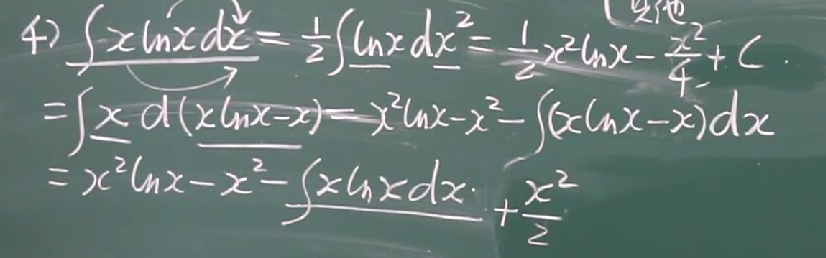 4) ∫x lnx dx = 1/2 ∫lnx dx² = 1/2 x² lnx − x²/4 + C.
= ∫x d(x lnx−x) = x² lnx − x² − ∫(x lnx−x)dx
= x² lnx − x² − ∫x lnx dx + x²/2